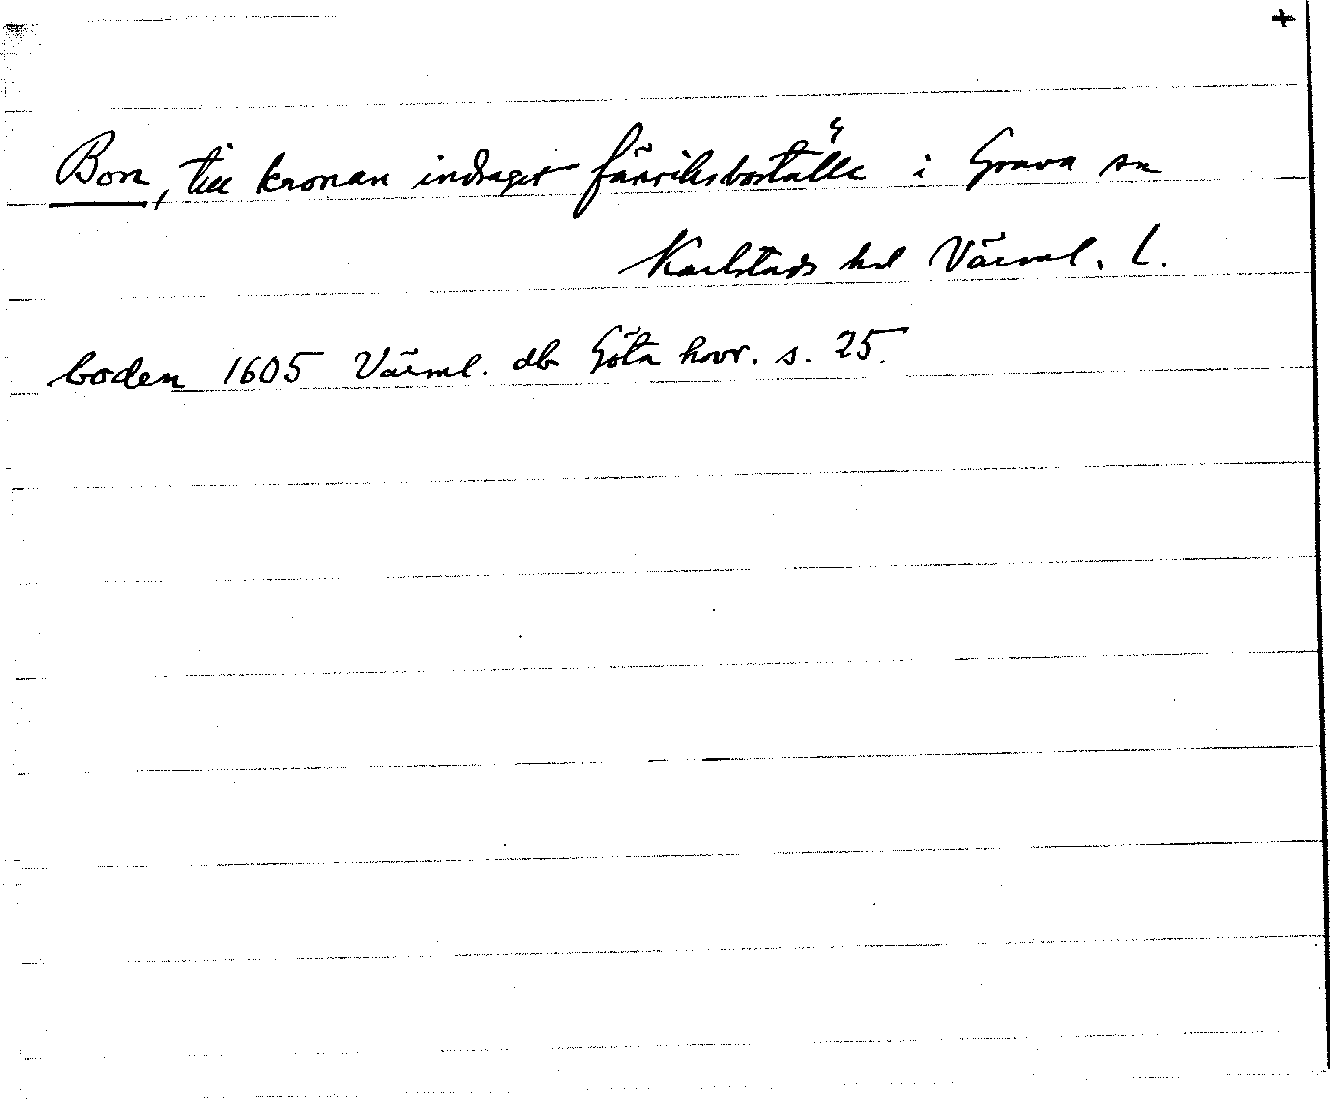 +
Bon, till kronan indraget fänriksboställe i Grava sn
Karlstads hd Värml. l.
boden 1605 Värml. db Göta hovr. s. 25.